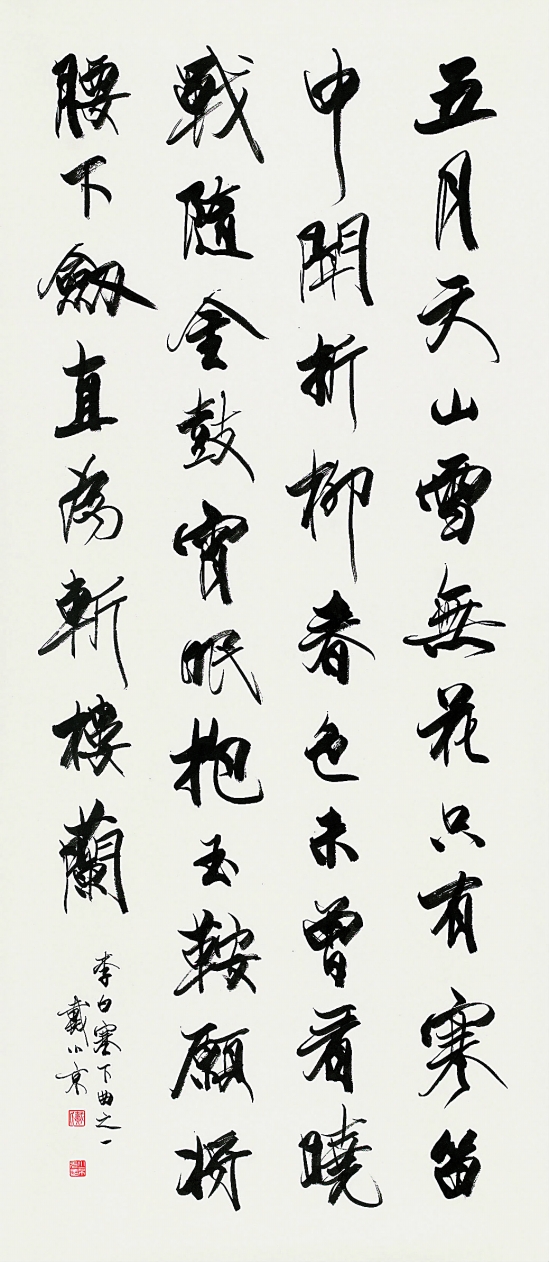 五月天山雪無花只有寒笛
中聞折柳春色未曾看曉
戰隨金鼓宵眠抱玉鞍願將
腰下劍直為斬樓蘭
李白塞下曲之一
戴小京